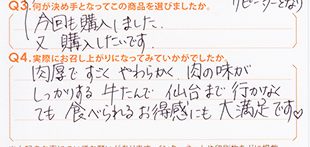 Q3.何が決め手となってこの商品を選びましたか。
リピーターとなり
今回も購入しました。
又 購入したいです。
Q4.実際にお召し上がりになってみていかがでしたか。
肉厚で すごく やわらかく、肉の味が
しっかりする 牛たんで 仙台まで 行かなく
ても 食べられる お得感にも 大満足です♡